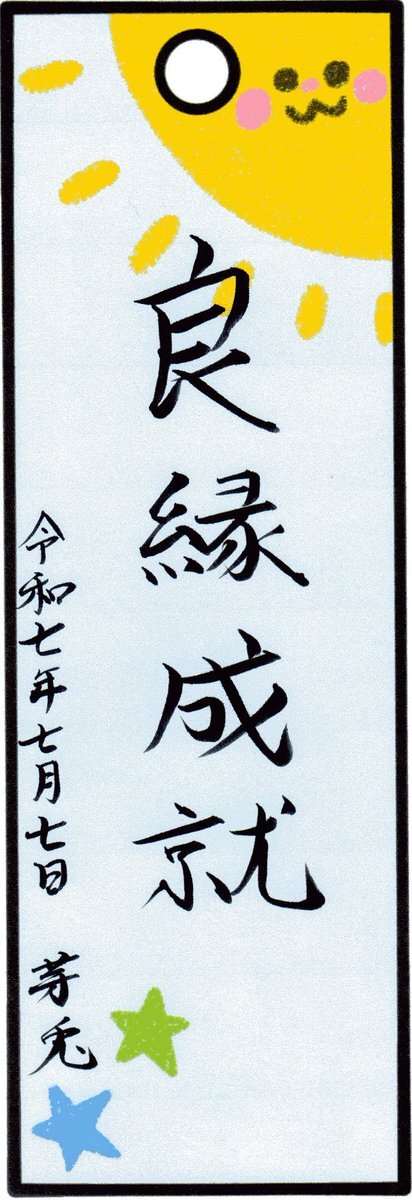 良縁成就
令和七年七月七日 芽兎